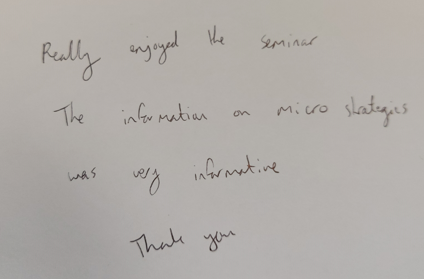 Really enjoyed the seminar
The information on micro strategies
was very informative
Thank you